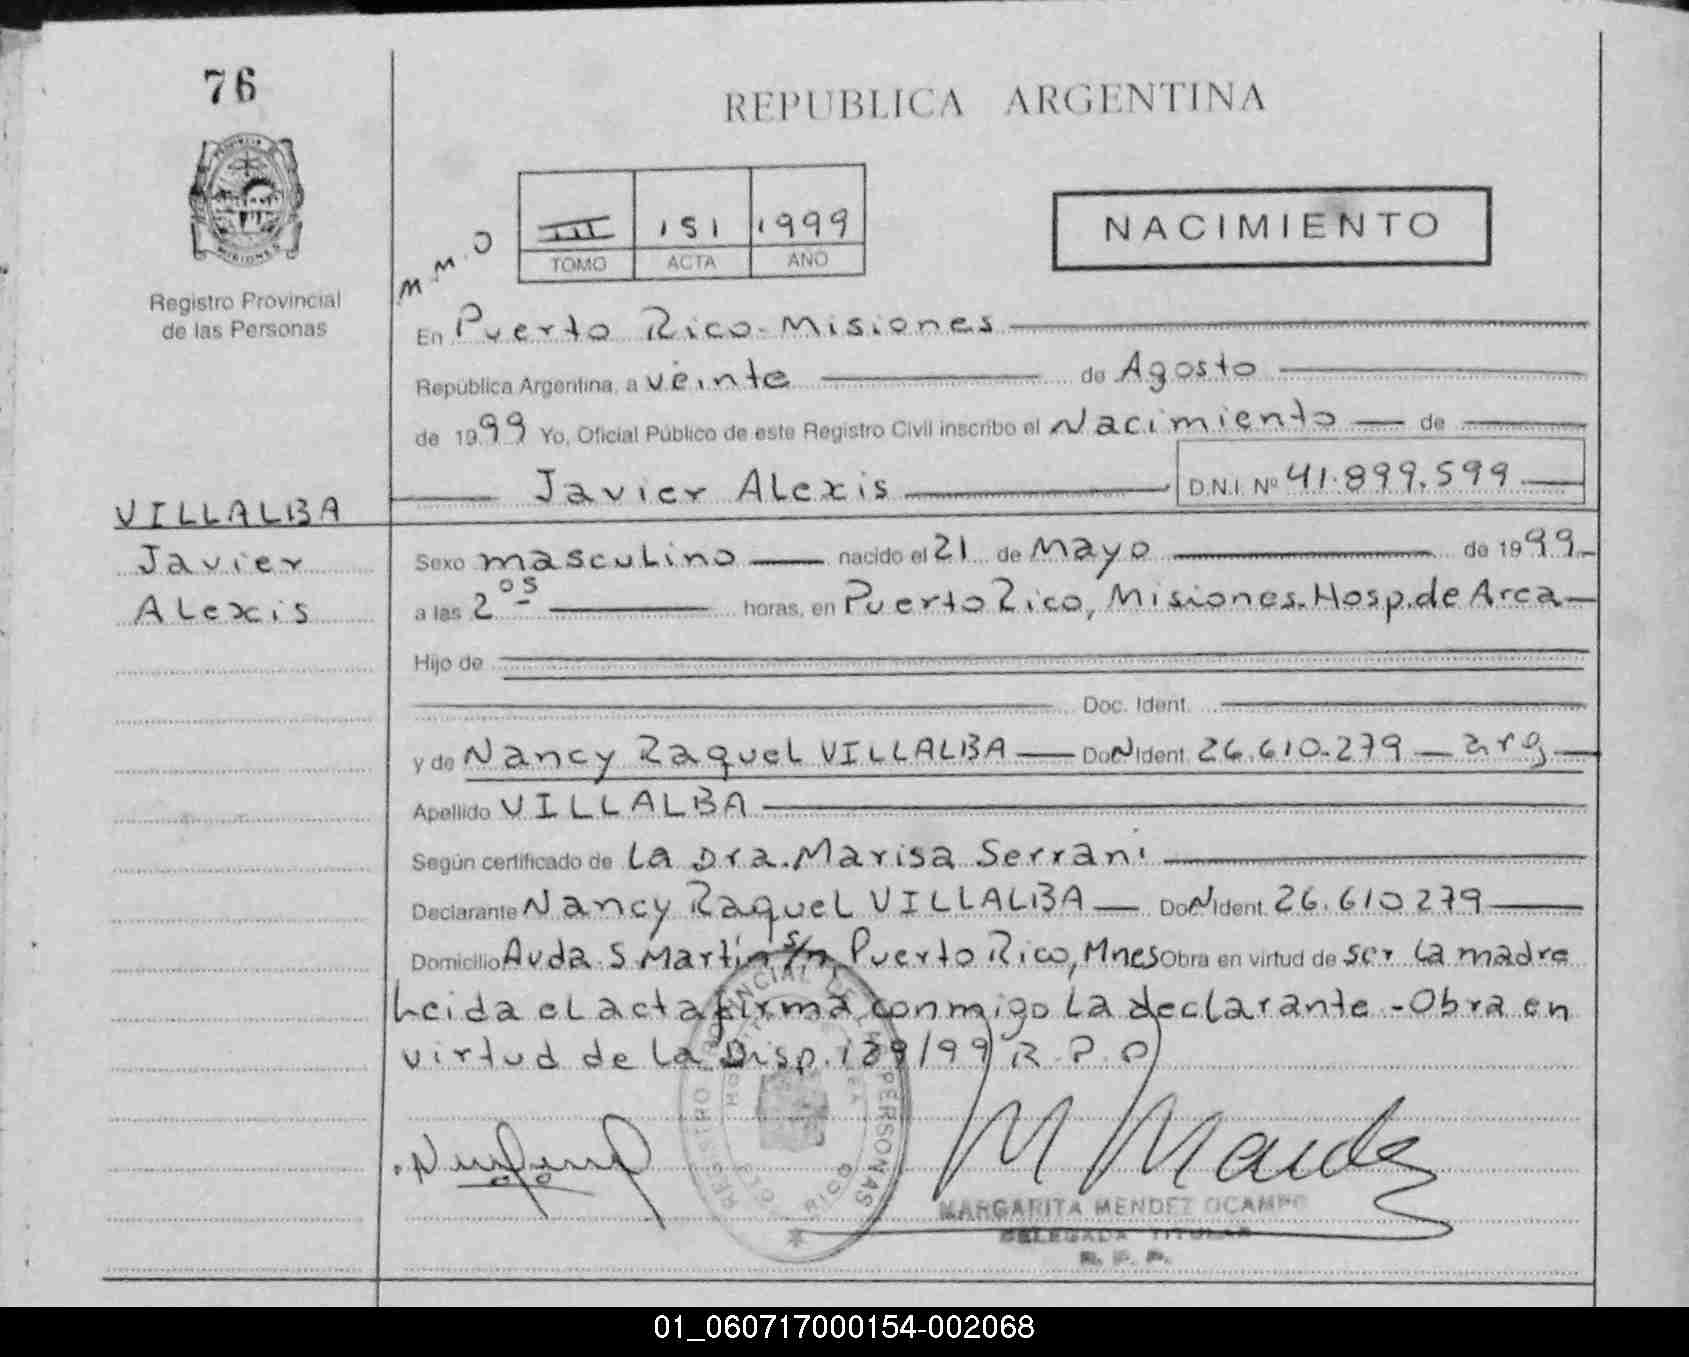 76
REPUBLICA ARGENTINA
III 151 1999
TOMO ACTA AÑO
NACIMIENTO
M.M.O
Registro Provincial
de las Personas
En Puerto Rico - Misiones
República Argentina, a veinte de Agosto
de 1999 Yo, Oficial Público de este Registro Civil inscribo el Nacimiento de
Javier Alexis D.N.I. Nº 41.899.599
VILLALBA
Javier
Alexis
Sexo masculino nacido el 21 de Mayo de 1999
a las 2 05 horas, en Puerto Rico, Misiones. Hosp. de Area
Hijo de
Doc. Ident.
y de Nancy Raquel VILLALBA Doc. Ident. 26.610.279 - arg
Apellido VILLALBA
Según certificado de la Dra. Marisa Serrani
Declarante Nancy Raquel VILLALBA Doc. Ident. 26.610279
Domicilio Avda. S. Martin s/n Puerto Rico, Mnes Obra en virtud de ser la madre
Leida el acta firma conmigo la declarante - Obra en
virtud de la Disp. 189/99 R.P.P
REGISTRO PROVINCIAL DE LAS PERSONAS
RICO
MARGARITA MENDEZ OCAMPO
DELEGADA TITULAR
R. P. P.
01_060717000154-002068